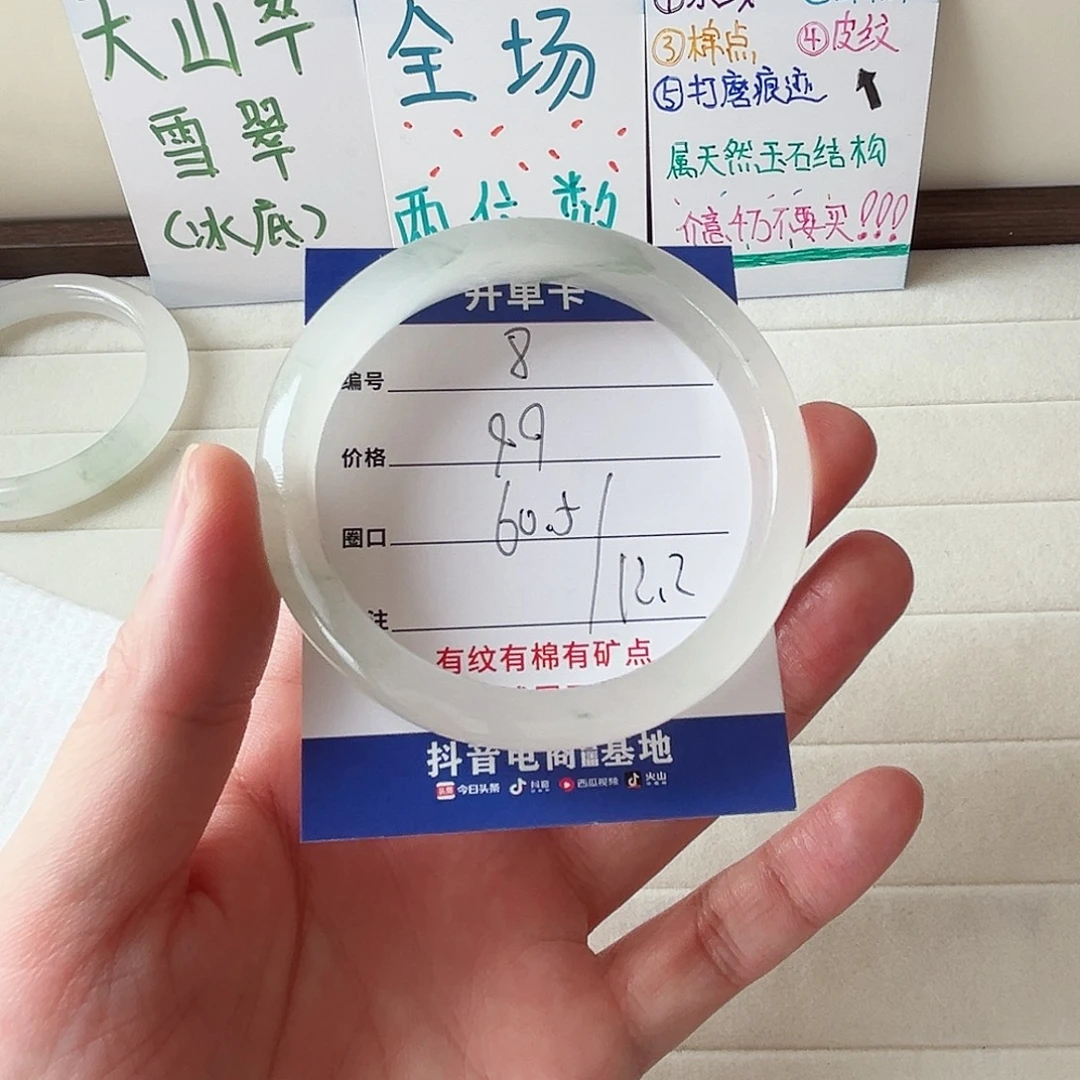 大山翠
雪翠
（冰底）
全场
两位数
③棉点
④皮纹
⑤打磨痕迹
属天然玉石结构
介意4万不要买!!!
开单卡
编号 8
价格 99
圈口 60.5/12.2
注
有纹有棉有矿点
抖音电商 基地
头条 今日头条 抖音 西瓜视频 火山